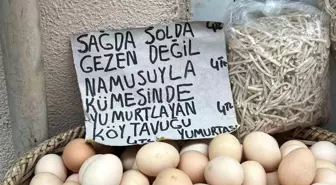 SAĞDA SOLDA
GEZEN DEĞİL
NAMUSUYLA 4TL
KÜMESİNDE
YUMURTLAYAN 4TL
KÖY TAVUĞU
4TL YUMURTASI